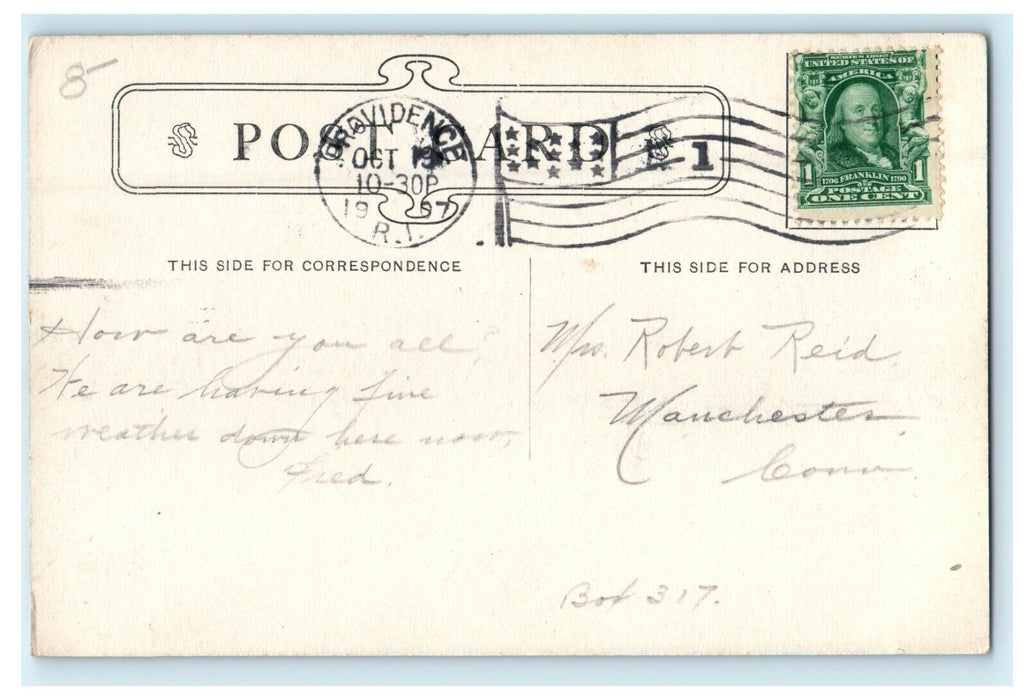 8
POST CARD
PROVIDENCE
OCT
10-30P
19 07
R.I.
1
SERIES 1902
UNITED STATES OF
AMERICA
1 1
1706 FRANKLIN 1790
POSTAGE
ONE CENT
THIS SIDE FOR CORRESPONDENCE
THIS SIDE FOR ADDRESS
How are you all?
We are having fine
weather down here now,
Fred.
Mrs. Robert Reid,
Manchester,
Conn.
Box 317.